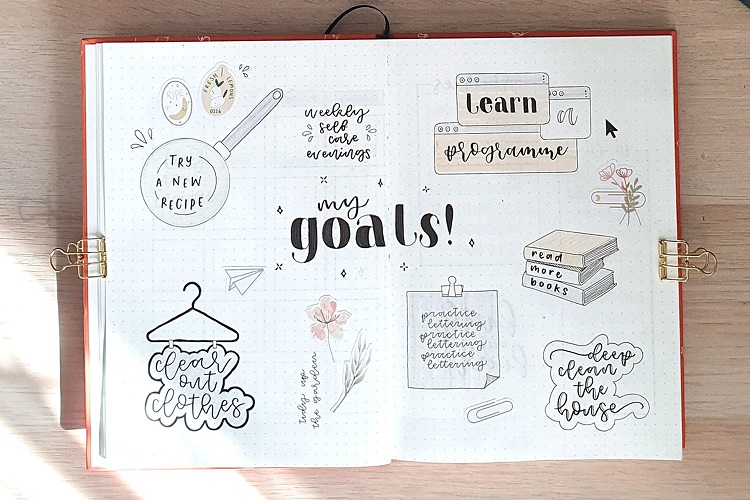 FRESH LEMONS
TRY
A NEW
RECIPE
weekly
self
care
evenings
learn
a
programme
my
goals!
read
more
books
clear
out
clothes
tidy up
the garden
practice
lettering
practice
lettering
practice
lettering
deep
clean
the
house